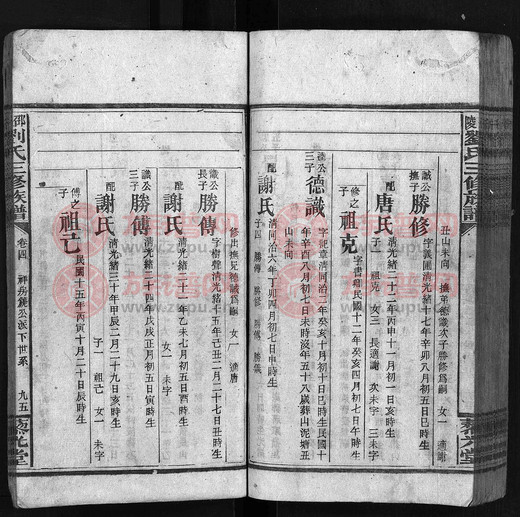 丑山未向 撫弟德識次子勝修爲嗣 女一 適謝
誠公撫子 勝修 字義圃清光緒十七年辛卯八月初五日亥時生
配 唐氏 清光緒二十二年丙申十一月初一日亥時生
子一 祖克 女三 長適謝 次未字 三未字
修之子 祖克 字書 民國十二年癸亥四月初七日午時生
公三子 德識 字 章清同治二年癸亥十月初十日巳時生民國十
年辛酉八月初七日未時沒年五十八歲葬山泥塘丑
山未向
配 謝氏 清同治六年丁卯四月初七日申時生
子四 勝傳 勝修 勝 勝儀
修出撫兄德誠爲嗣 女一 適唐
識公長子 勝傳 字樹聲清光緒十五年己丑二月二十七日丑時生
配 謝氏 清光緒二十一年乙未七月初五日酉時生
女一 未字
識公三子 勝傳 清光緒二十四年戊戌正月初五日寅時生
配 謝氏 清光緒三十年甲辰二月二十九日亥時生
子一 祖己 女一 未字
傳之子 祖己 民國十五年丙寅十月二十日辰時生
劉氏三修族譜
卷四 祥房 公派下世系 九五